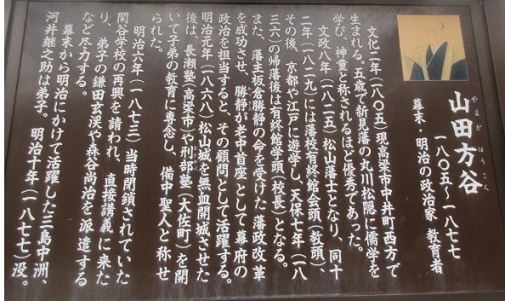 山田方谷
やまだほうこく
一八〇五〜一八七七
幕末・明治の政治家 教育者
文化二年(一八〇五)現高梁市中井町西方で
生まれる。五歳で新見藩の丸川松隠に儒学を
学び、神童と称されるほど優秀であった。
文政八年(一八二五)松山藩士となり、同十
二年(一八二九)には藩校有終館会頭(教頭)、
その後、京都や江戸に遊学し、天保七年(一八
三六)の帰藩後は有終館学頭(校長)となる。
また、藩主板倉勝静の命を受けた藩政改革
を成功させ、勝静が老中首座として幕府の
政治を担当すると、その顧問として活躍する。
明治元年(一八六八)松山城を無血開城させた
後は、長瀬塾(高梁市)や刑部塾(大佐町)を開
いて子弟の教育に専念し、備中聖人と称せ
られた。
明治六年(一八七三)当時閉鎖されていた
閑谷学校の再興を請われ、直接講義に来た
り、弟子の鎌田玄渓や森谷尚治を派遣する
など尽力する。
幕末から明治にかけて活躍した三島中洲、
河井継之助は弟子。明治十年(一八七七)没。